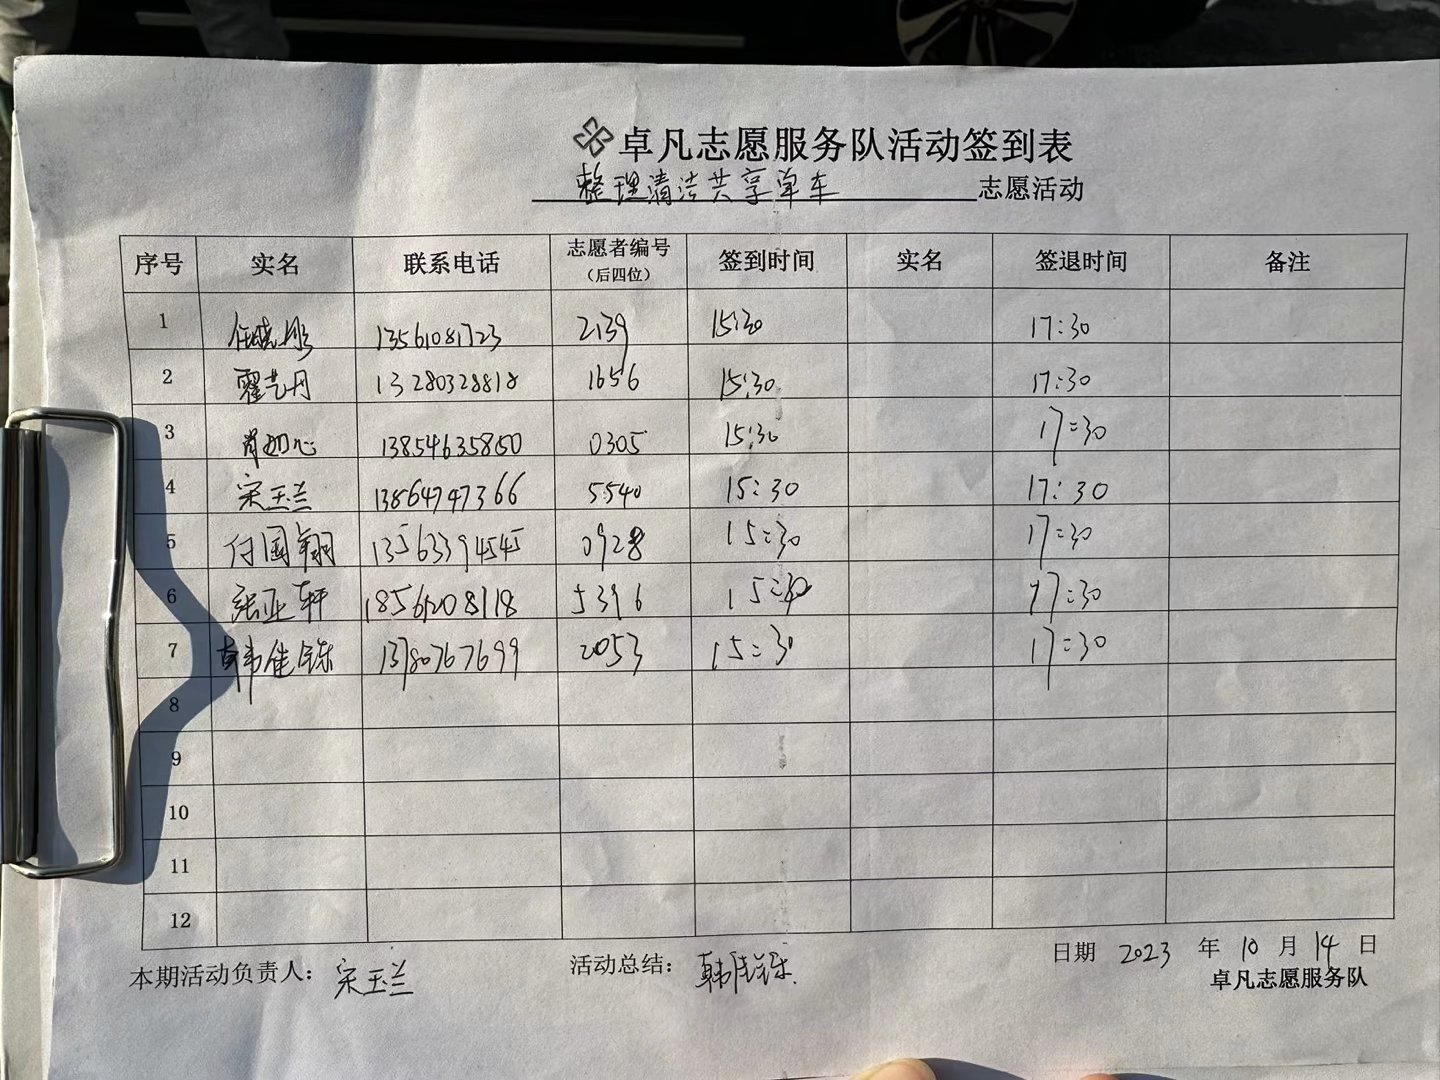 卓凡志愿服务队活动签到表
整理清洁共享单车 志愿活动
序号 实名 联系电话 志愿者编号（后四位） 签到时间 实名 签退时间 备注
1 任晓彤 13561081723 2139 15:30 17:30
2 霍艺丹 13280328818 1656 15:30 17:30
3 肖如心 13854635850 0305 15:30 17:30
4 宋玉兰 13864747366 5540 15:30 17:30
5 付国翔 13563394545 0928 15:30 17:30
6 张亚轩 18561208118 5396 15:30 17:30
7 韩佳铄 13780767699 2053 15:30 17:30
8
9
10
11
12
本期活动负责人： 宋玉兰 活动总结： 韩佳铄 日期 2023 年 10 月 14 日
卓凡志愿服务队